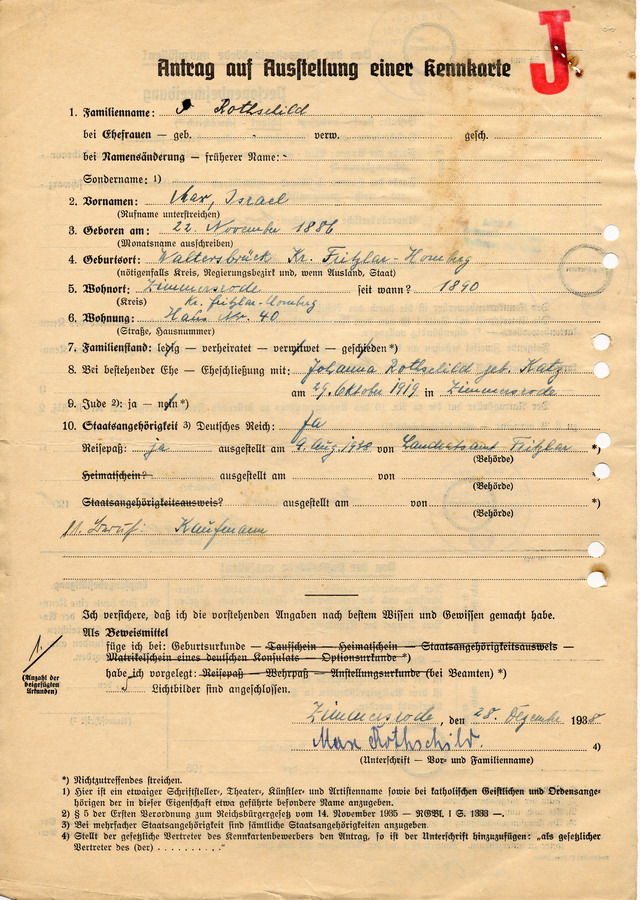 J
Antrag auf Ausstellung einer Kennkarte
1. Familienname: Rothschild
bei Ehefrauen — geb. verw. gesch.
bei Namensänderung — früherer Name: -
Sondername: 1)
2. Vornamen: Max, Israel
(Rufname unterstreichen)
3. Geboren am: 22. November 1886
(Monatsname ausschreiben)
4. Geburtsort: Waltersbrück Kr. Fritzlar-Homberg
(nötigenfalls Kreis, Regierungsbezirk und, wenn Ausland, Staat)
5. Wohnort: Zimmersrode seit wann? 1890
(Kreis) Kr. Fritzlar-Homberg
6. Wohnung: Haus Nr. 40
(Straße, Hausnummer)
7. Familienstand: ledig — verheiratet — verwitwet — geschieden *)
8. Bei bestehender Ehe — Eheschließung mit: Johanna Rothschild geb. Katz
am 29. Oktober 1919 in Zimmersrode
9. Jude 2): ja — nein *)
10. Staatsangehörigkeit 3) Deutsches Reich: Ja
Reisepaß: ja ausgestellt am 9. Aug. 1938 von Landratsamt Fritzlar *)
(Behörde)
Heimatschein? ausgestellt am von *)
(Behörde)
Staatsangehörigkeitsausweis? ausgestellt am von *)
(Behörde)
11. Beruf: Kaufmann
Ich versichere, daß ich die vorstehenden Angaben nach bestem Wissen und Gewissen gemacht habe.
Als Beweismittel
füge ich bei: Geburtsurkunde — Taufschein — Heimatschein — Staatsangehörigkeitsausweis —
Matrikelschein eines deutschen Konsulats — Optionsurkunde *)
habe ich vorgelegt: Reisepaß — Wehrpaß — Anstellungsurkunde (bei Beamten) *)
Lichtbilder sind angeschlossen.
1.
(Anzahl der
beigefügten
Urkunden)
Zimmersrode, den 28. Dezember 1938
Max Rothschild. 4)
(Unterschrift — Vor- und Familienname)
*) Nichtzutreffendes streichen.
1) Hier ist ein etwaiger Schriftsteller-, Theater-, Künstler- und Artistenname sowie bei katholischen Geistlichen und Ordensange-
hörigen der in dieser Eigenschaft etwa geführte besondere Name anzugeben.
2) § 5 der Ersten Verordnung zum Reichsbürgergesetz vom 14. November 1935 — RGBl. I S. 1333 —.
3) Bei mehrfacher Staatsangehörigkeit sind sämtliche Staatsangehörigkeiten anzugeben.
4) Stellt der gesetzliche Vertreter des Kennkartenbewerbers den Antrag, so ist der Unterschrift hinzuzufügen: „als gesetzlicher
Vertreter des (der) . . . . . . . . . ."